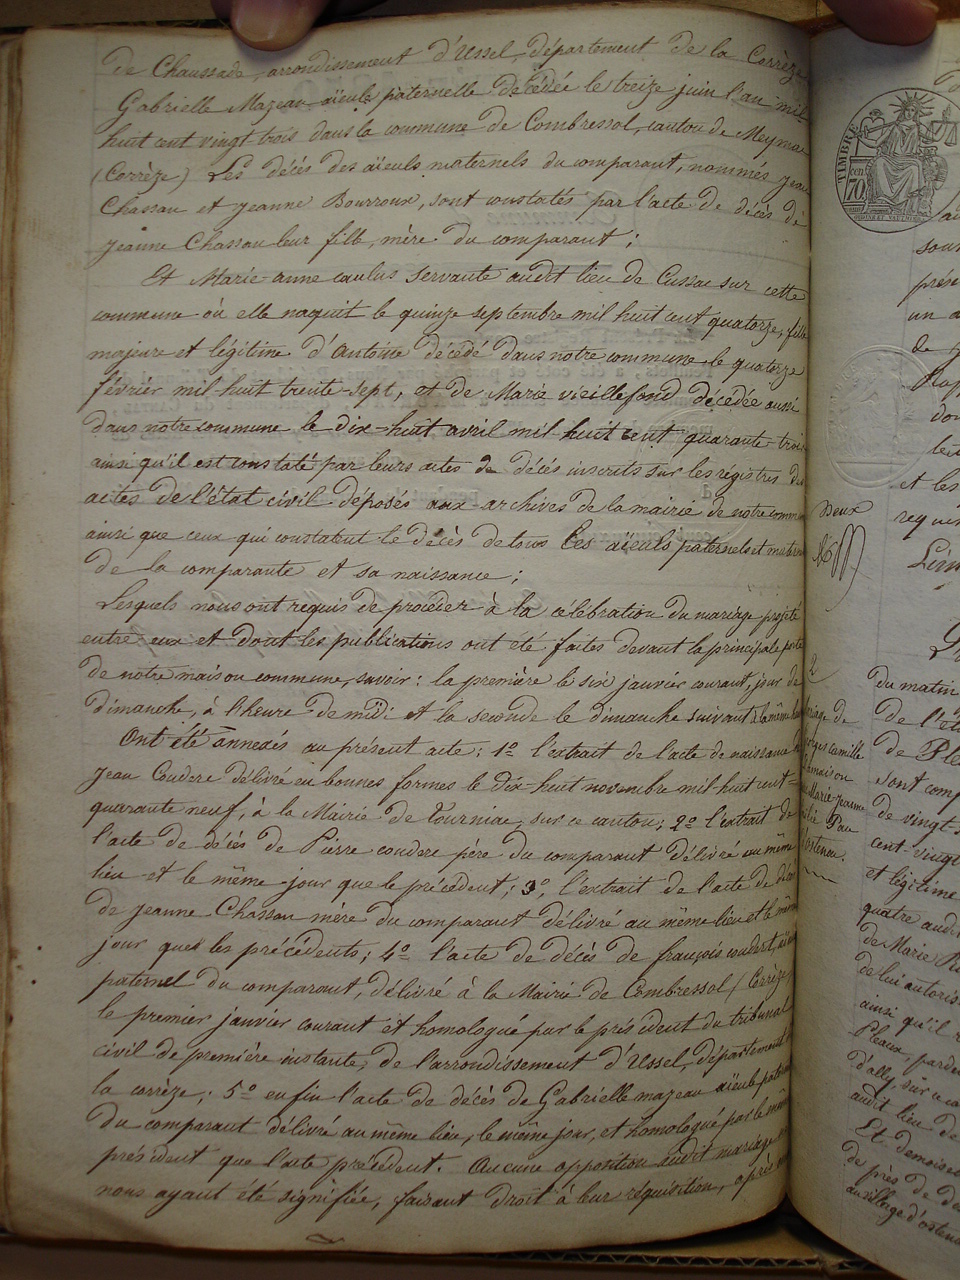 de Chaussade, arrondissement d'Ussel, département de la Corrèze
Gabrielle Mazeau aïeule paternelle décédée le treize juin l'an mil
huit cent vingt trois dans la commune de Combressol, canton de Meymac
(Corrèze) Les décès des aïeuls maternels du comparant, nommés jean
Chassau et jeanne Bourroux, sont constatés par l'acte de décès de
jeanne Chassau leur fille, mère du comparant ;
Et Marie-anne caulus servante audit lieu de Cussac sur cette
commune où elle naquit le quinze septembre mil huit cent quatorze, fille
majeure et légitime d'Antoine décédé dans notre commune le quatorze
février mil huit trente-sept, et de Marie vieillefond décédée aussi
dans notre commune le dix-huit avril mil huit cent quarante trois
ainsi qu'il est constaté par leurs actes de décès inscrits sur les régistres des
actes de l'état civil déposés aux archives de la mairie de notre commune
ainsi que ceux qui constatent le décès de tous les aïeuls paternels et maternels
de la comparante et sa naissance ;
Lesquels nous ont requis de procéder à la célébration du mariage projeté
entre eux et dont les publications ont été faites devant la principale porte
de notre maison commune, savoir : la première le six janvier courant, jour de
dimanche, à l'heure de midi et la seconde le dimanche suivant à la même heure
Ont été annexés au présent acte : 1º l'extrait de l'acte de naissance de
jean Couderc délivré en bonnes formes le dix-huit novembre mil huit cent
quarante neuf, à la Mairie de Tourniac, sur ce canton ; 2º l'extrait de
l'acte de décès de Pierre couderc père du comparant délivré au même
lieu et le même jour que le précédent ; 3º, l'extrait de l'acte de décès
de jeanne Chassau mère du comparant délivré au même lieu et le même
jour que les précédents ; 4º l'acte de décès de françois coudert, aïeul
paternel du comparant, délivré à la Mairie de Combressol (Corrèze)
le premier janvier courant et homologué par le président du tribunal
civil de première instante, de l'arrondissement d'Ussel, département de
la corrèze ; 5º enfin l'acte de décès de Gabrielle mazeau aïeule paternelle
du comparant délivré au même lieu, le même jour, et homologué par le même
président que l'acte précédent. Aucune opposition audit mariage
nous ayant été signifiée, faisant droit à leur réquisition, après
TIMBRE
70
Deux
2
mariage de
camille
Marie-jeanne
d'ostenac.
et les
requis
du matin
de l'ét
de Ple
sont comp
de vingt-s
cent-vingt
et légitime
quatre audit
de Marie
de lui autoris
ainsi qu'il
Pleaux, par de
d'ally, sur ce ca
audit lieu de
Et demoisel
de près de
au village d'ostena